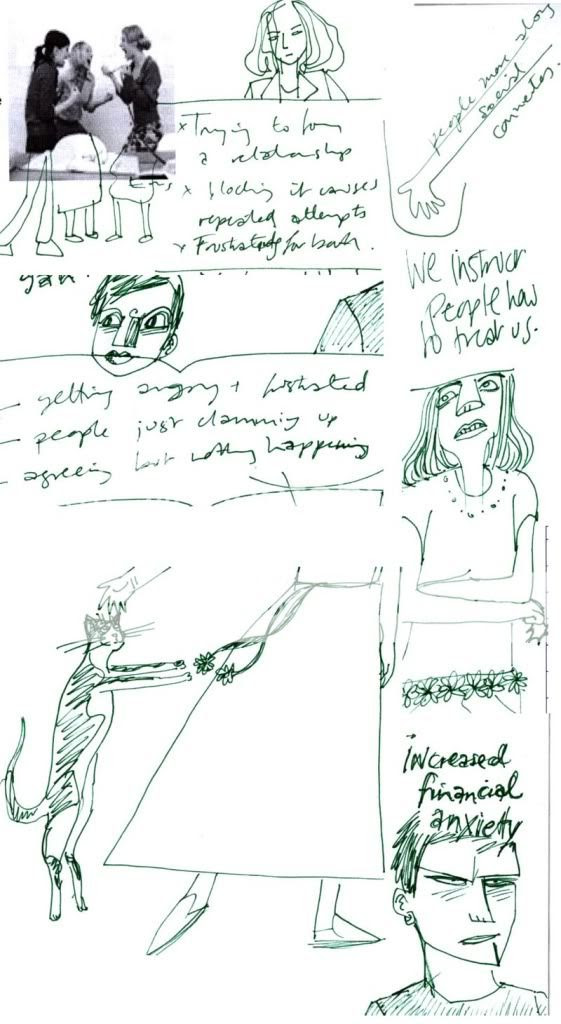 x Trying to form
a relationship
x blocking it causes
repeated attempts
x Frustrating for both.
people move along
social
connections.
We instruct
people how
to trust us.
– getting angry + frustrated
– people just clamming up
– agreeing but nothing happening
increased
financial
anxiety